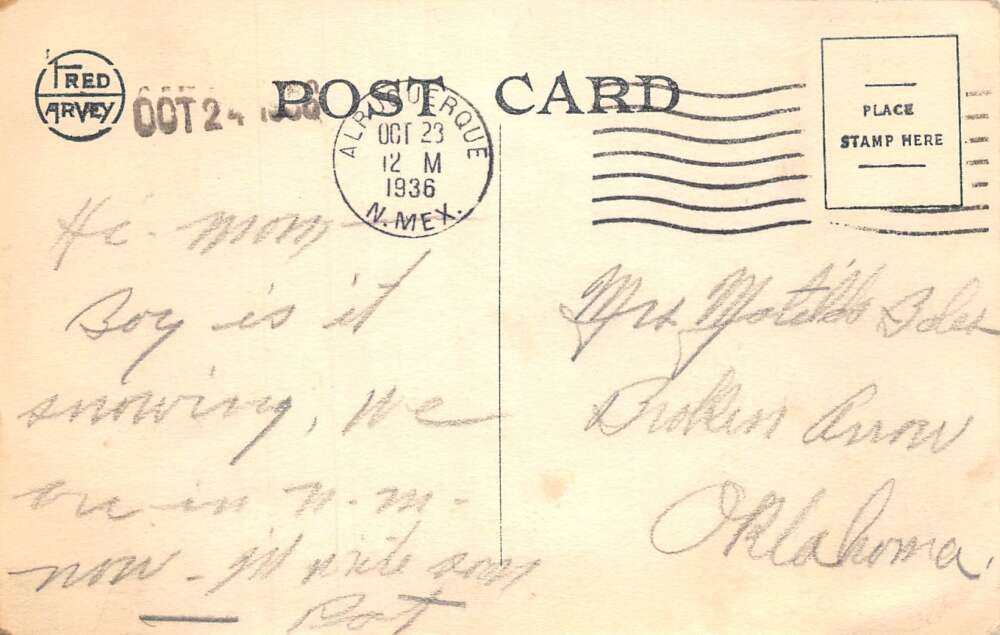 FRED
HARVEY
OCT 24 1936
POST CARD
ALBUQUERQUE
OCT 23
12 M
1936
N. MEX.
PLACE
STAMP HERE
Hi - mom
Boy is it
snowing, we
are in n. m. -
now - I'll write soon
Mrs Matilda
Broken Arrow
Oklahoma.